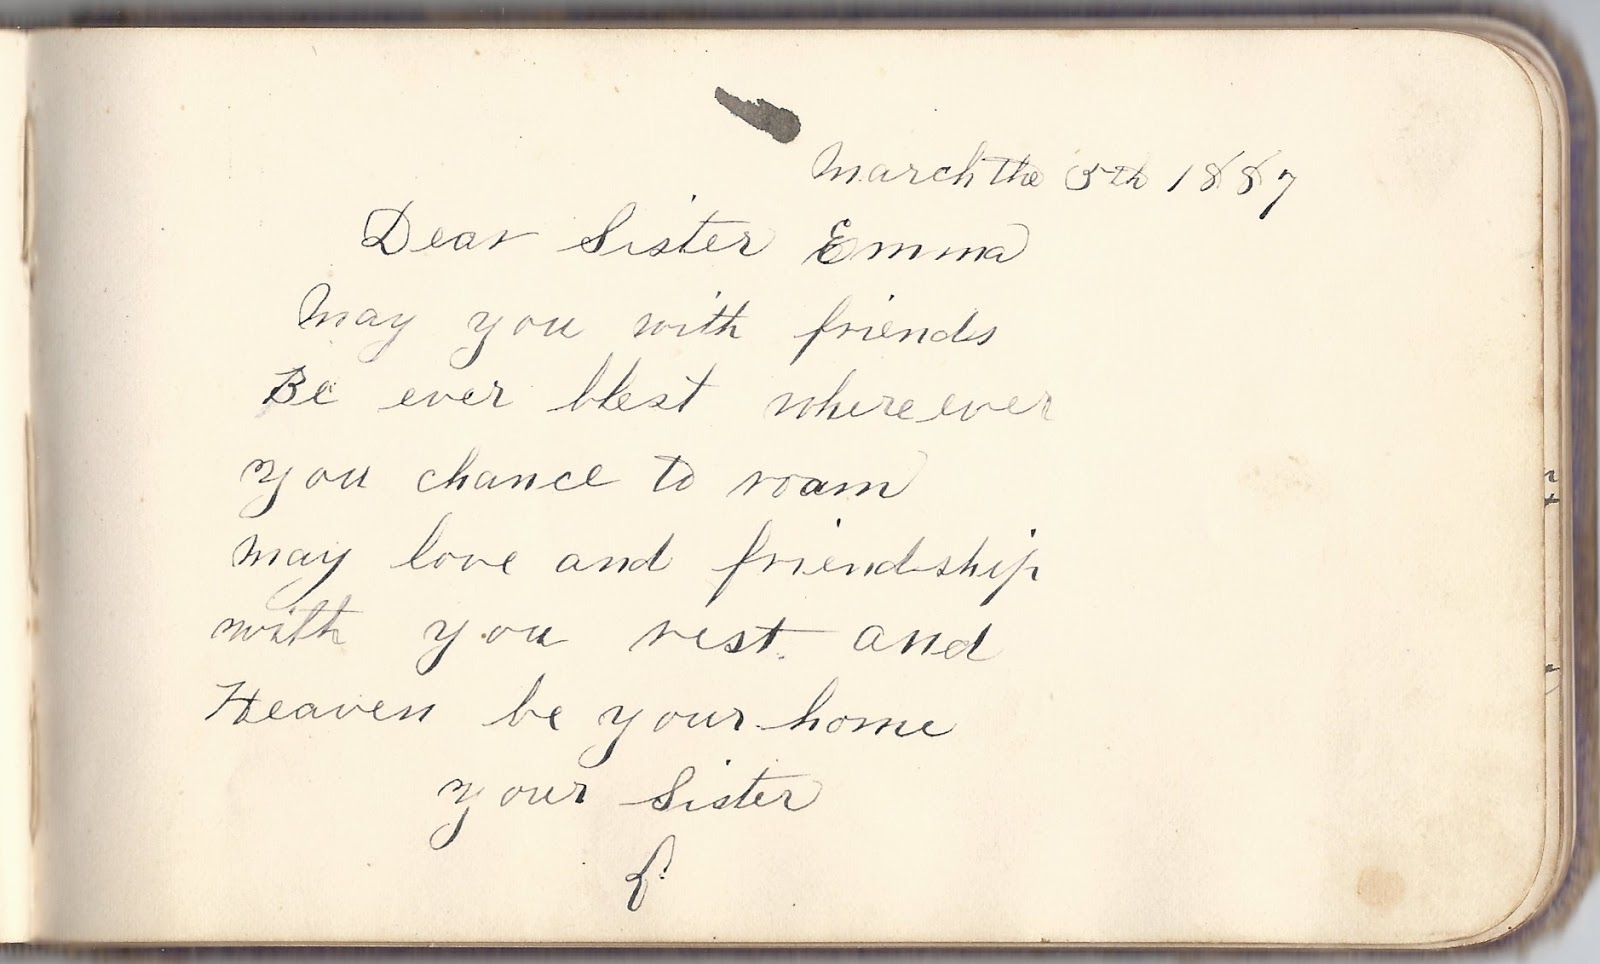 March the 5th 1887
Dear Sister Emma
May you with friends
Be ever blest where ever
you chance to roam
may love and friendship
with you rest and
Heaven be your home
your Sister